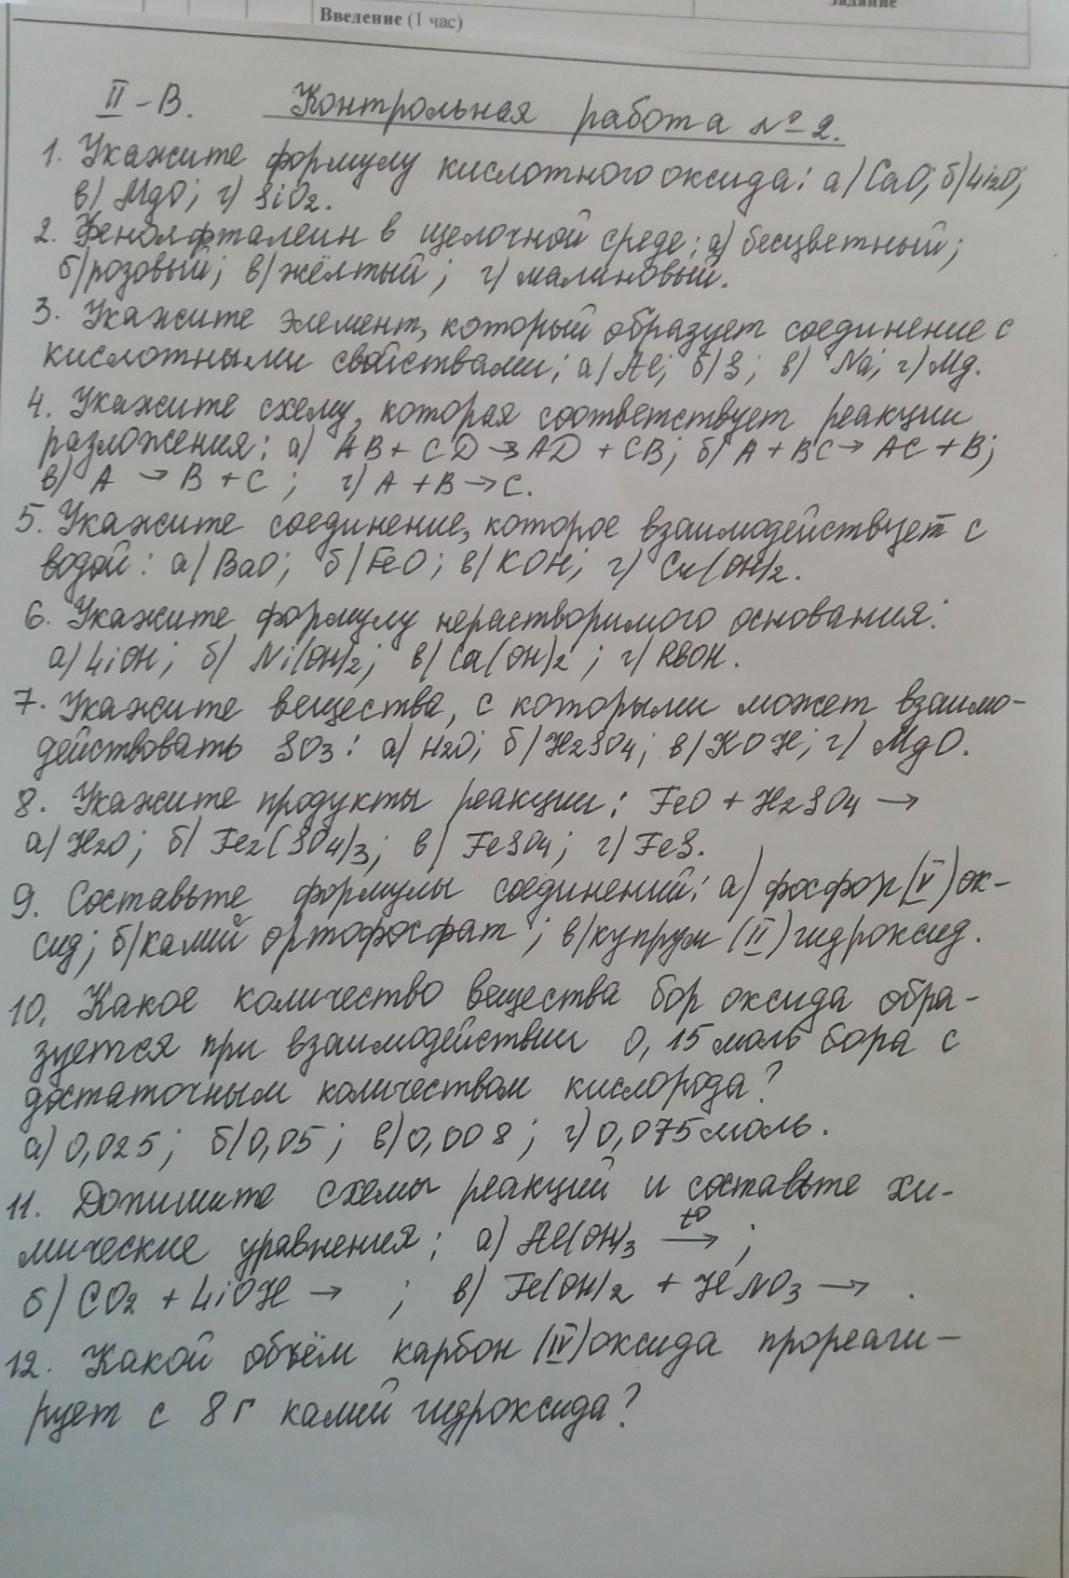 задание
Введение (1 час)
II-В. Контрольная работа № 2.
1. Укажите формулу кислотного оксида: а) CaO; б) Li2O;
в) MgO; г) SiO2.
2. Фенолфталеин в щелочной среде: а) бесцветный;
б) розовый; в) жёлтый; г) малиновый.
3. Укажите элемент, который образует соединение с
кислотными свойствами: а) Al; б) S; в) Na; г) Mg.
4. Укажите схему, которая соответствует реакции
разложения: а) AB + CD → AD + CB; б) A + BC → AC + B;
в) A → B + C; г) A + B → C.
5. Укажите соединение, которое взаимодействует с
водой: а) BaO; б) FeO; в) KOH; г) Cu(OH)2.
6. Укажите формулу нерастворимого основания:
а) LiOH; б) Ni(OH)2; в) Ca(OH)2; г) RbOH.
7. Укажите вещества, с которыми может взаимо-
действовать SO3: а) H2O; б) H2SO4; в) KOH; г) MgO.
8. Укажите продукты реакции: FeO + H2SO4 →
а) H2O; б) Fe2(SO4)3; в) FeSO4; г) FeS.
9. Составьте формулы соединений: а) фосфор (V) ок-
сид; б) калий ортофосфат; в) купрум (II) гидроксид.
10. Какое количество вещества бор оксида обра-
зуется при взаимодействии 0,15 моль бора с
достаточным количеством кислорода?
а) 0,025; б) 0,05; в) 0,008; г) 0,075 моль.
11. Допишите схемы реакций и составьте хи-
мические уравнения: а) Al(OH)3 t° →;
б) CO2 + LiOH → ; в) Fe(OH)2 + HNO3 → .
12. Какой объём карбон (IV) оксида прореаги-
рует с 8 г калий гидроксида?